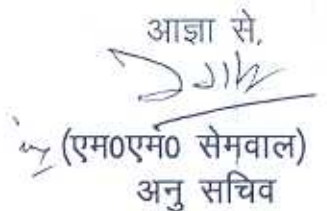 आज्ञा से,
(एम0एम0 सेमवाल)
अनु सचिव